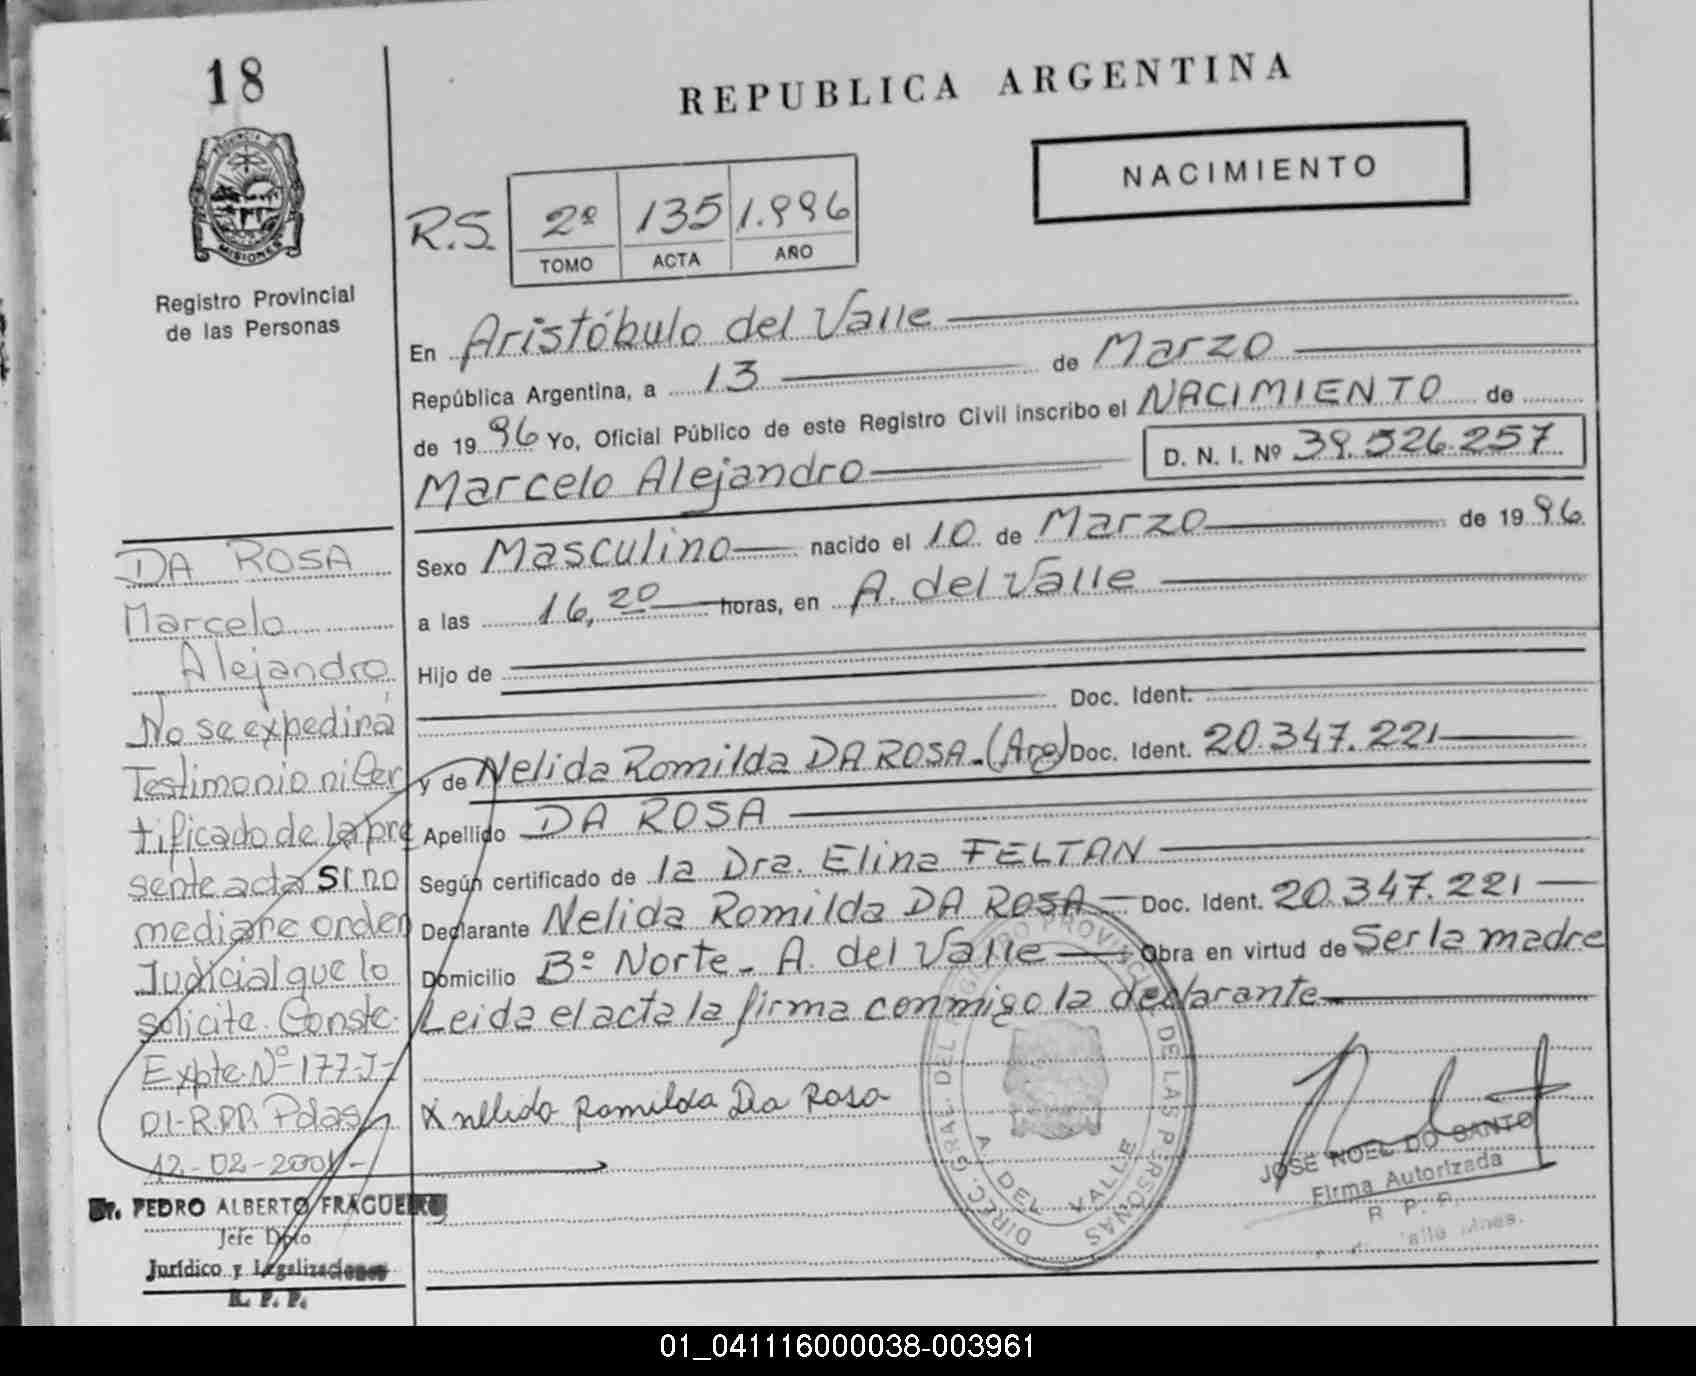 18
PROVINCIA DE
MISIONES
Registro Provincial
de las Personas
REPUBLICA ARGENTINA
NACIMIENTO
R.S. 2º 135 1.996
TOMO ACTA AÑO
En Aristóbulo del Valle
República Argentina, a 13 de Marzo
de 1996 Yo, Oficial Público de este Registro Civil inscribo el NACIMIENTO de
Marcelo Alejandro D. N. I. Nº 39.526.257
Sexo Masculino nacido el 10 de Marzo de 1996
a las 16,20 horas, en A. del Valle
Hijo de
Doc. Ident.
y de Nelida Romilda DA ROSA.(Arg) Doc. Ident. 20.347.221
Apellido DA ROSA
Según certificado de la Dra. Elina FELTAN
Declarante Nelida Romilda DA ROSA Doc. Ident. 20.347.221
Domicilio Bº Norte - A. del Valle Obra en virtud de Ser la madre
Leida el acta la firma conmigo la declarante
X nelida Romilda Da Rosa
DIREC. GRAL. DEL REGISTRO PROVINCIAL DE LAS PERSONAS
A. DEL VALLE
JOSE NOEL DO SANTO
Firma Autorizada
R. P. P.
Valle Mnes.
DA ROSA
Marcelo
Alejandro
No se expedirá
Testimonio ni Cer
tificado de la pre
sente acta SI no
mediare orden
Judicial que lo
solicite. Conste.
Expte Nº 177-J-
01-R.P.P. Pdas
12-02-2001-
Dr. PEDRO ALBERTO FRAGUEIRO
Jefe Dpto
Jurídico y Legalizaciones
R. P. P.
01_041116000038-003961